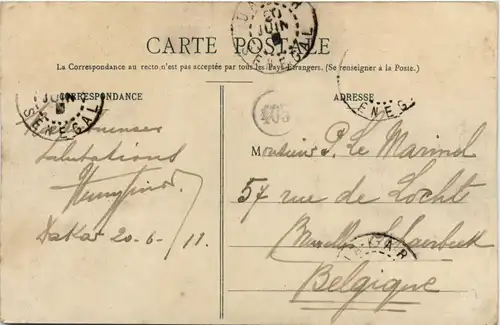 DAKAR
20
JUIN
SENEGAL
CARTE POSTALE
La Correspondance au recto n'est pas acceptée par tous les Pays Étrangers. (Se renseigner à la Poste.)
CORRESPONDANCE
JUIN
SENEGAL
Salutations
Dakar 20-6-/11.
405
ADRESSE
SENEG
Monsieur P. Le Marinel
57 rue de Locht
Bruxelles Schaerbeek
KAR
Belgique